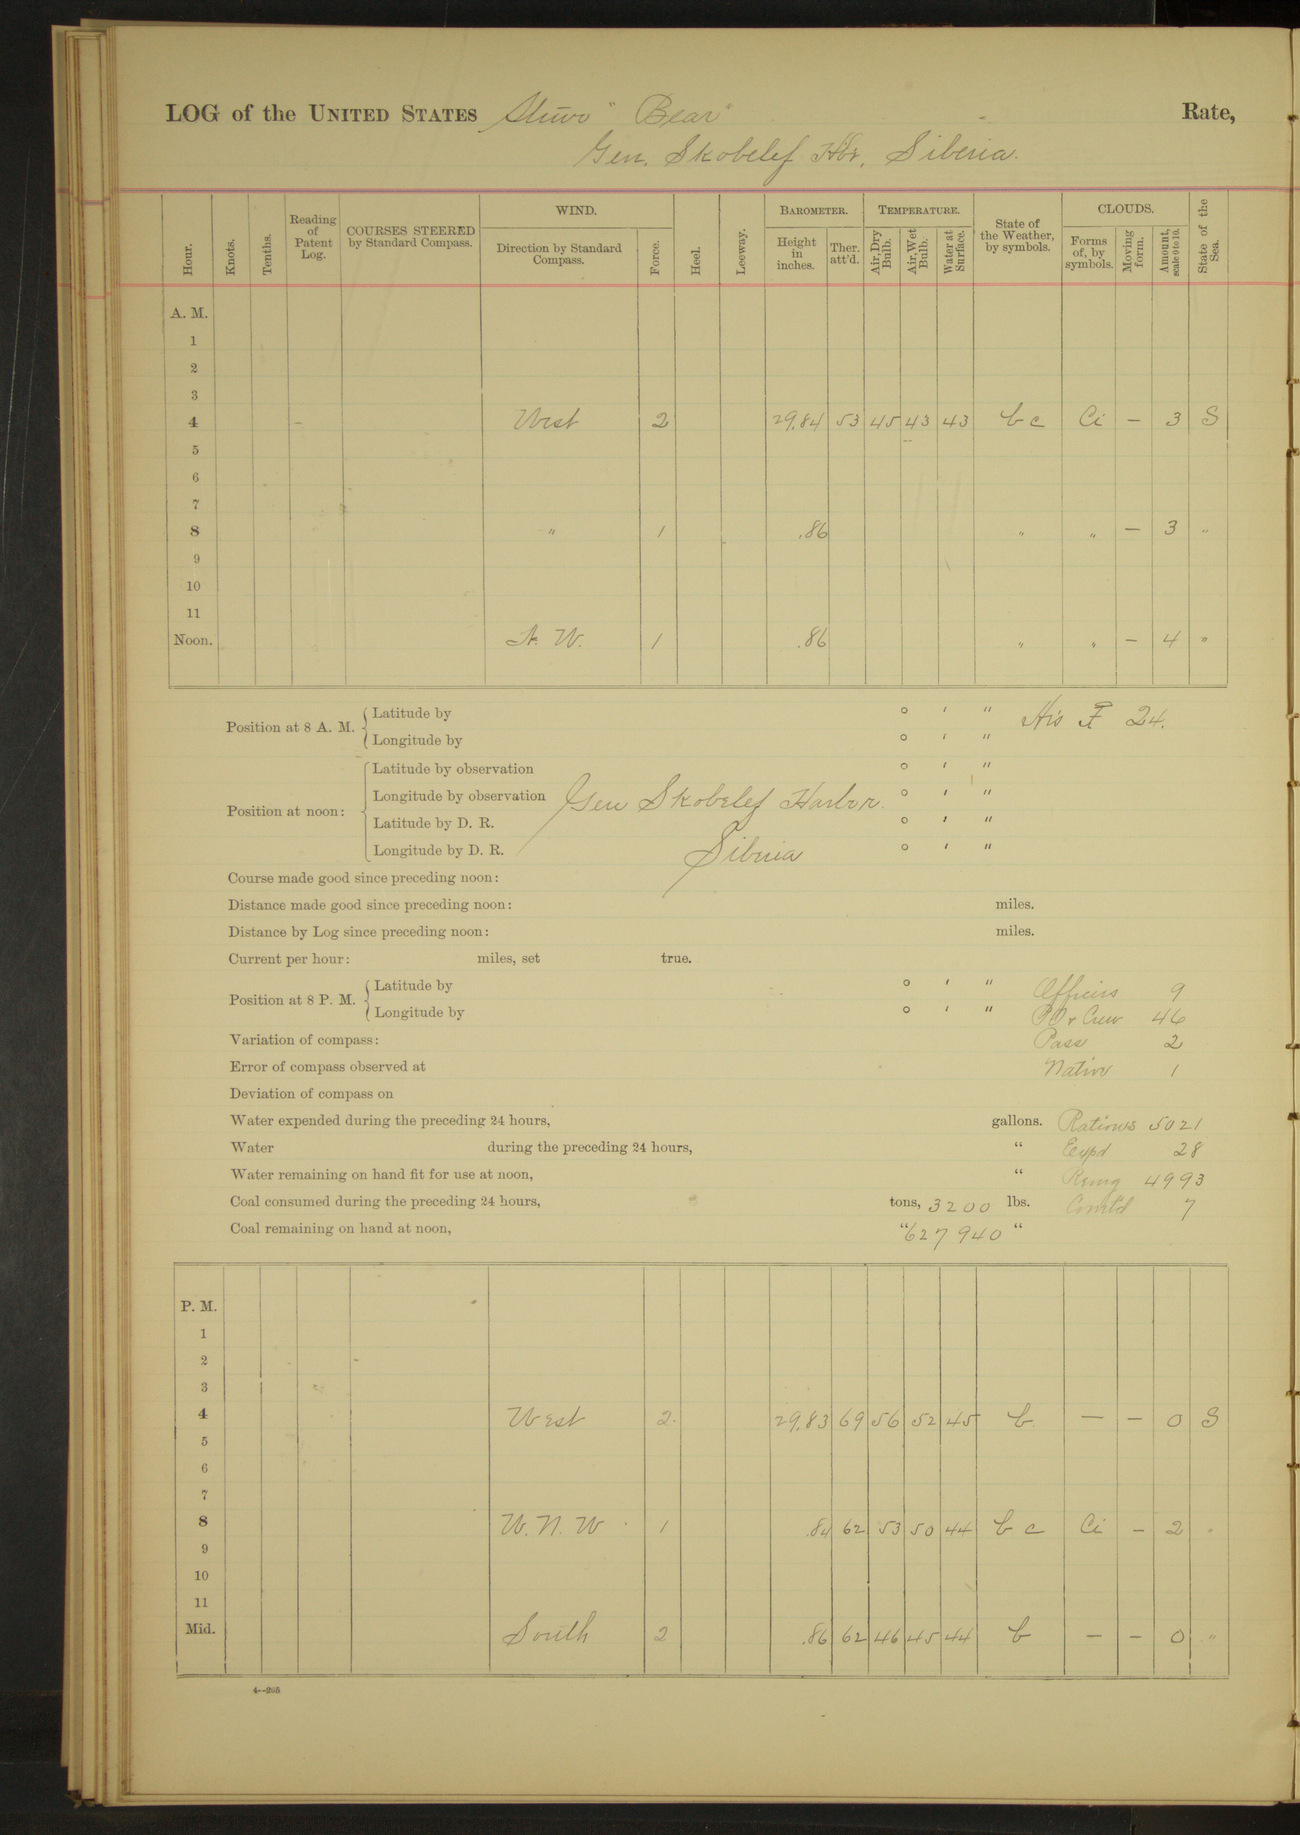 LOG of the UNITED STATES "Bear" Rate,
Gen. Skobelef Hbr, Siberia.
Hour. Knots. Tenths. Reading of Patent Log. COURSES STEERED by Standard Compass. WIND. Direction by Standard Compass. Force. Heel. Leeway. BAROMETER. Height in inches. Ther. att'd. TEMPERATURE. Air, Dry Bulb. Air, Wet Bulb. Water at Surface. State of the Weather, by symbols. CLOUDS. Forms of, by symbols. Moving form. Amount, scale 0 to 10. State of the Sea.
A. M.
1
2
3
4 - West 2 29.84 53 45 43 43 b c Ci — 3 S
5
6
7
8 " 1 .86 " " — 3 "
9
10
11
Noon. N. W. 1 .86 " " — 4 "
Position at 8 A. M. { Latitude by ° ′ ″ His 24.
Longitude by ° ′ ″
Position at noon: { Latitude by observation ° ′ ″
Longitude by observation Gen Skobelef Harbor. ° ′ ″
Latitude by D. R. ° ′ ″
Longitude by D. R. Siberia ° ′ ″
Course made good since preceding noon:
Distance made good since preceding noon: miles.
Distance by Log since preceding noon: miles.
Current per hour: miles, set true.
Position at 8 P. M. { Latitude by ° ′ ″ Officers 9
Longitude by ° ′ ″ PO & Crew 46
Variation of compass: Pass 2
Error of compass observed at Native 1
Deviation of compass on
Water expended during the preceding 24 hours, gallons. Rations 5021
Water during the preceding 24 hours, " Expd 28
Water remaining on hand fit for use at noon, " Remg 4993
Coal consumed during the preceding 24 hours, tons, 3200 lbs. Com'td 7
Coal remaining on hand at noon, " 627940 "
P. M.
1
2
3
4 West 2 29.83 69 56 52 45 b — — 0 S
5
6
7
8 W. N. W 1 .84 62 53 50 44 b c Ci — 2 "
9
10
11
Mid. South 2 .86 62 46 45 44 b — — 0 "
4--205